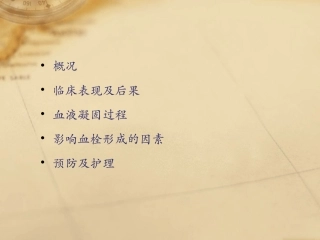 • 概况
• 临床表现及后果
• 血液凝固过程
• 影响血栓形成的因素
• 预防及护理